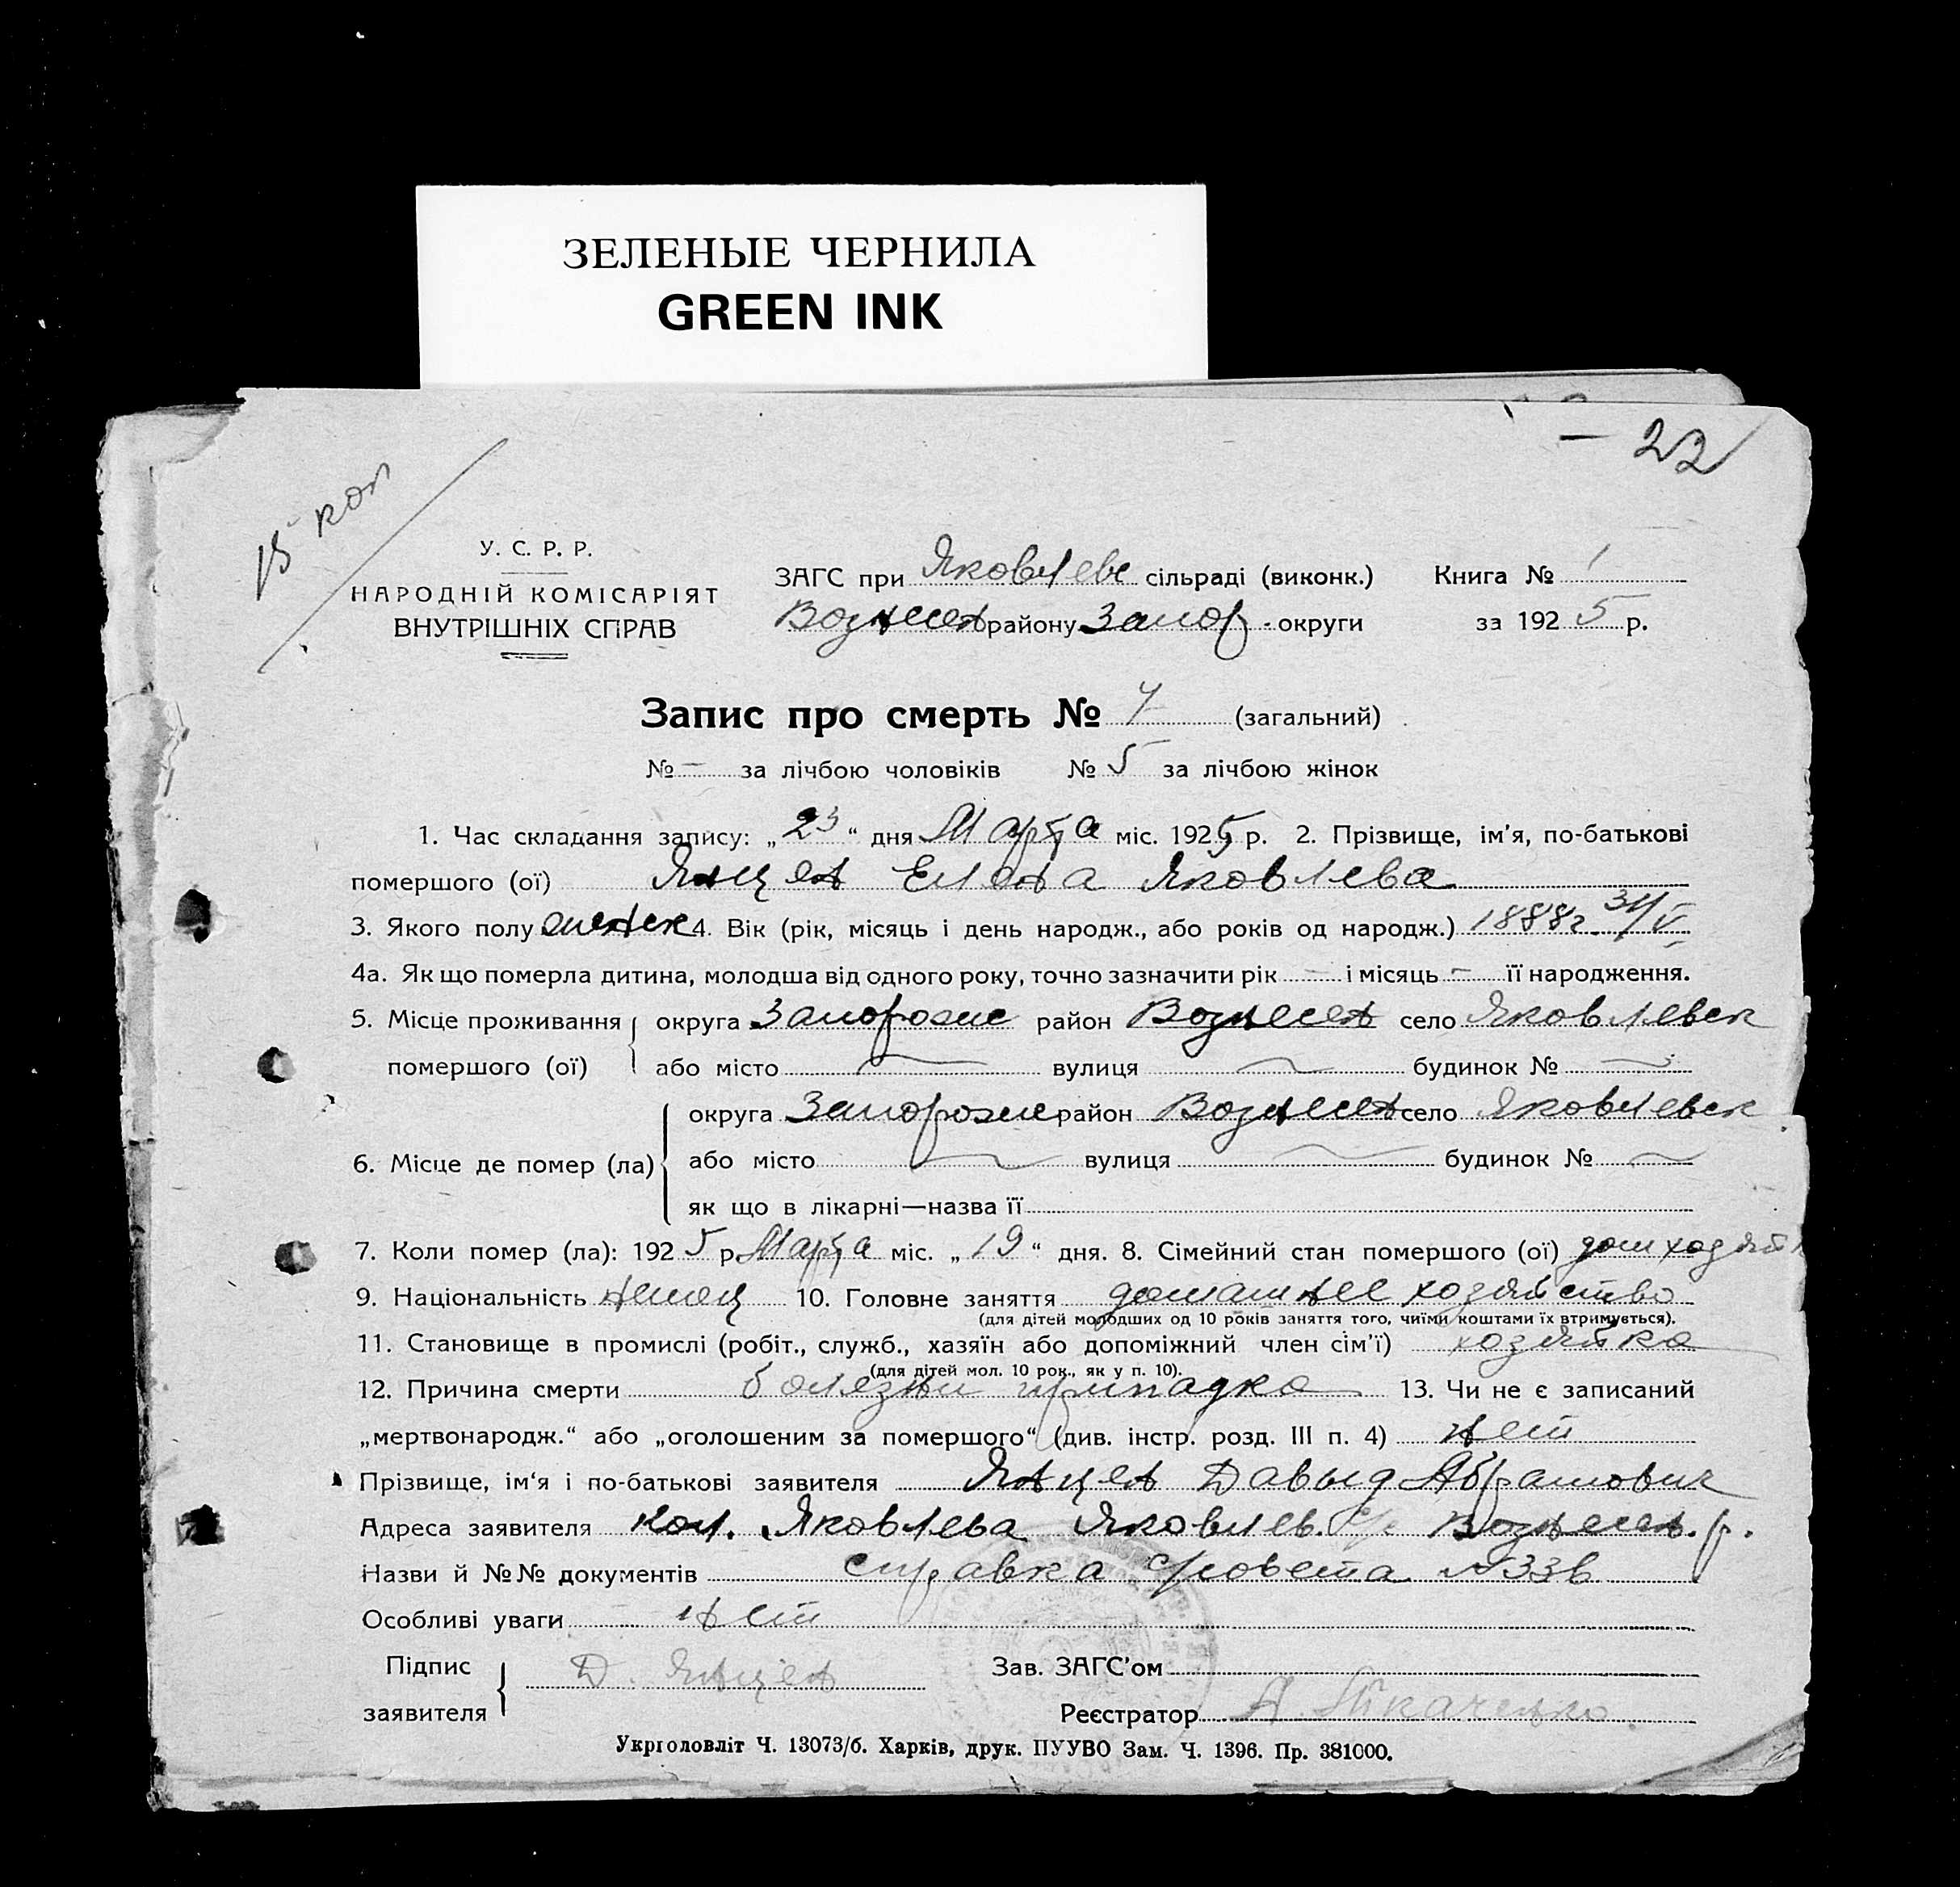 ЗЕЛЕНЫЕ ЧЕРНИЛА
GREEN INK
— 22
15 коп
У. С. Р. Р.
НАРОДНІЙ КОМІСАРІЯТ
ВНУТРІШНІХ СПРАВ
ЗАГС при Яковлевс сільраді (виконк.) Книга № 1
Вознесен району Запор. округи за 1925 р.
Запис про смерть № 7 (загальний)
№ — за лічбою чоловіків № 5 за лічбою жінок
1. Час складання запису: „23“ дня Марта міс. 1925 р. 2. Прізвище, ім’я, по-батькові
помершого (ої) Янцен Елена Яковлева
3. Якого полу женск 4. Вік (рік, місяць і день народж., або років од народж.) 1888г. 31/V
4а. Як що померла дитина, молодша від одного року, точно зазначити рік — і місяць — її народження.
5. Місце проживання помершого (ої) округа Запорож район Вознесен село Яковлевск
або місто вулиця будинок №
6. Місце де помер (ла) округа Запорож район Вознесен село Яковлевск
або місто вулиця будинок №
як що в лікарні—назва її
7. Коли помер (ла): 1925 р. Марта міс. „19“ дня. 8. Сімейний стан помершого (ої) дом хозяйк
9. Національність немец 10. Головне заняття домашнее хозяйство
(для дітей молодших од 10 років заняття того, чиїми коштами їх втримується).
11. Становище в промислі (робіт., служб., хазяїн або допоміжний член сім’ї) хозяйка
(для дітей мол. 10 рок., як у п. 10).
12. Причина смерти болезни припадка 13. Чи не є записаний
„мертвонародж.“ або „оголошеним за помершого“ (див. інстр. розд. III п. 4) нет
Прізвище, ім‘я і по-батькові заявителя Янцен Давыд Абрамович
Адреса заявителя кол. Яковлева Яковлев. с/с Вознесен. р.
Назви й №№ документів справка с/совета №336
Особливі уваги нет
Підпис заявителя Д. Янцен Зав. ЗАГС’ом
Реєстратор А. Ткаченко
Укрголовліт Ч. 13073/б. Харків, друк. ПУУВО Зам. Ч. 1396. Пр. 381000.